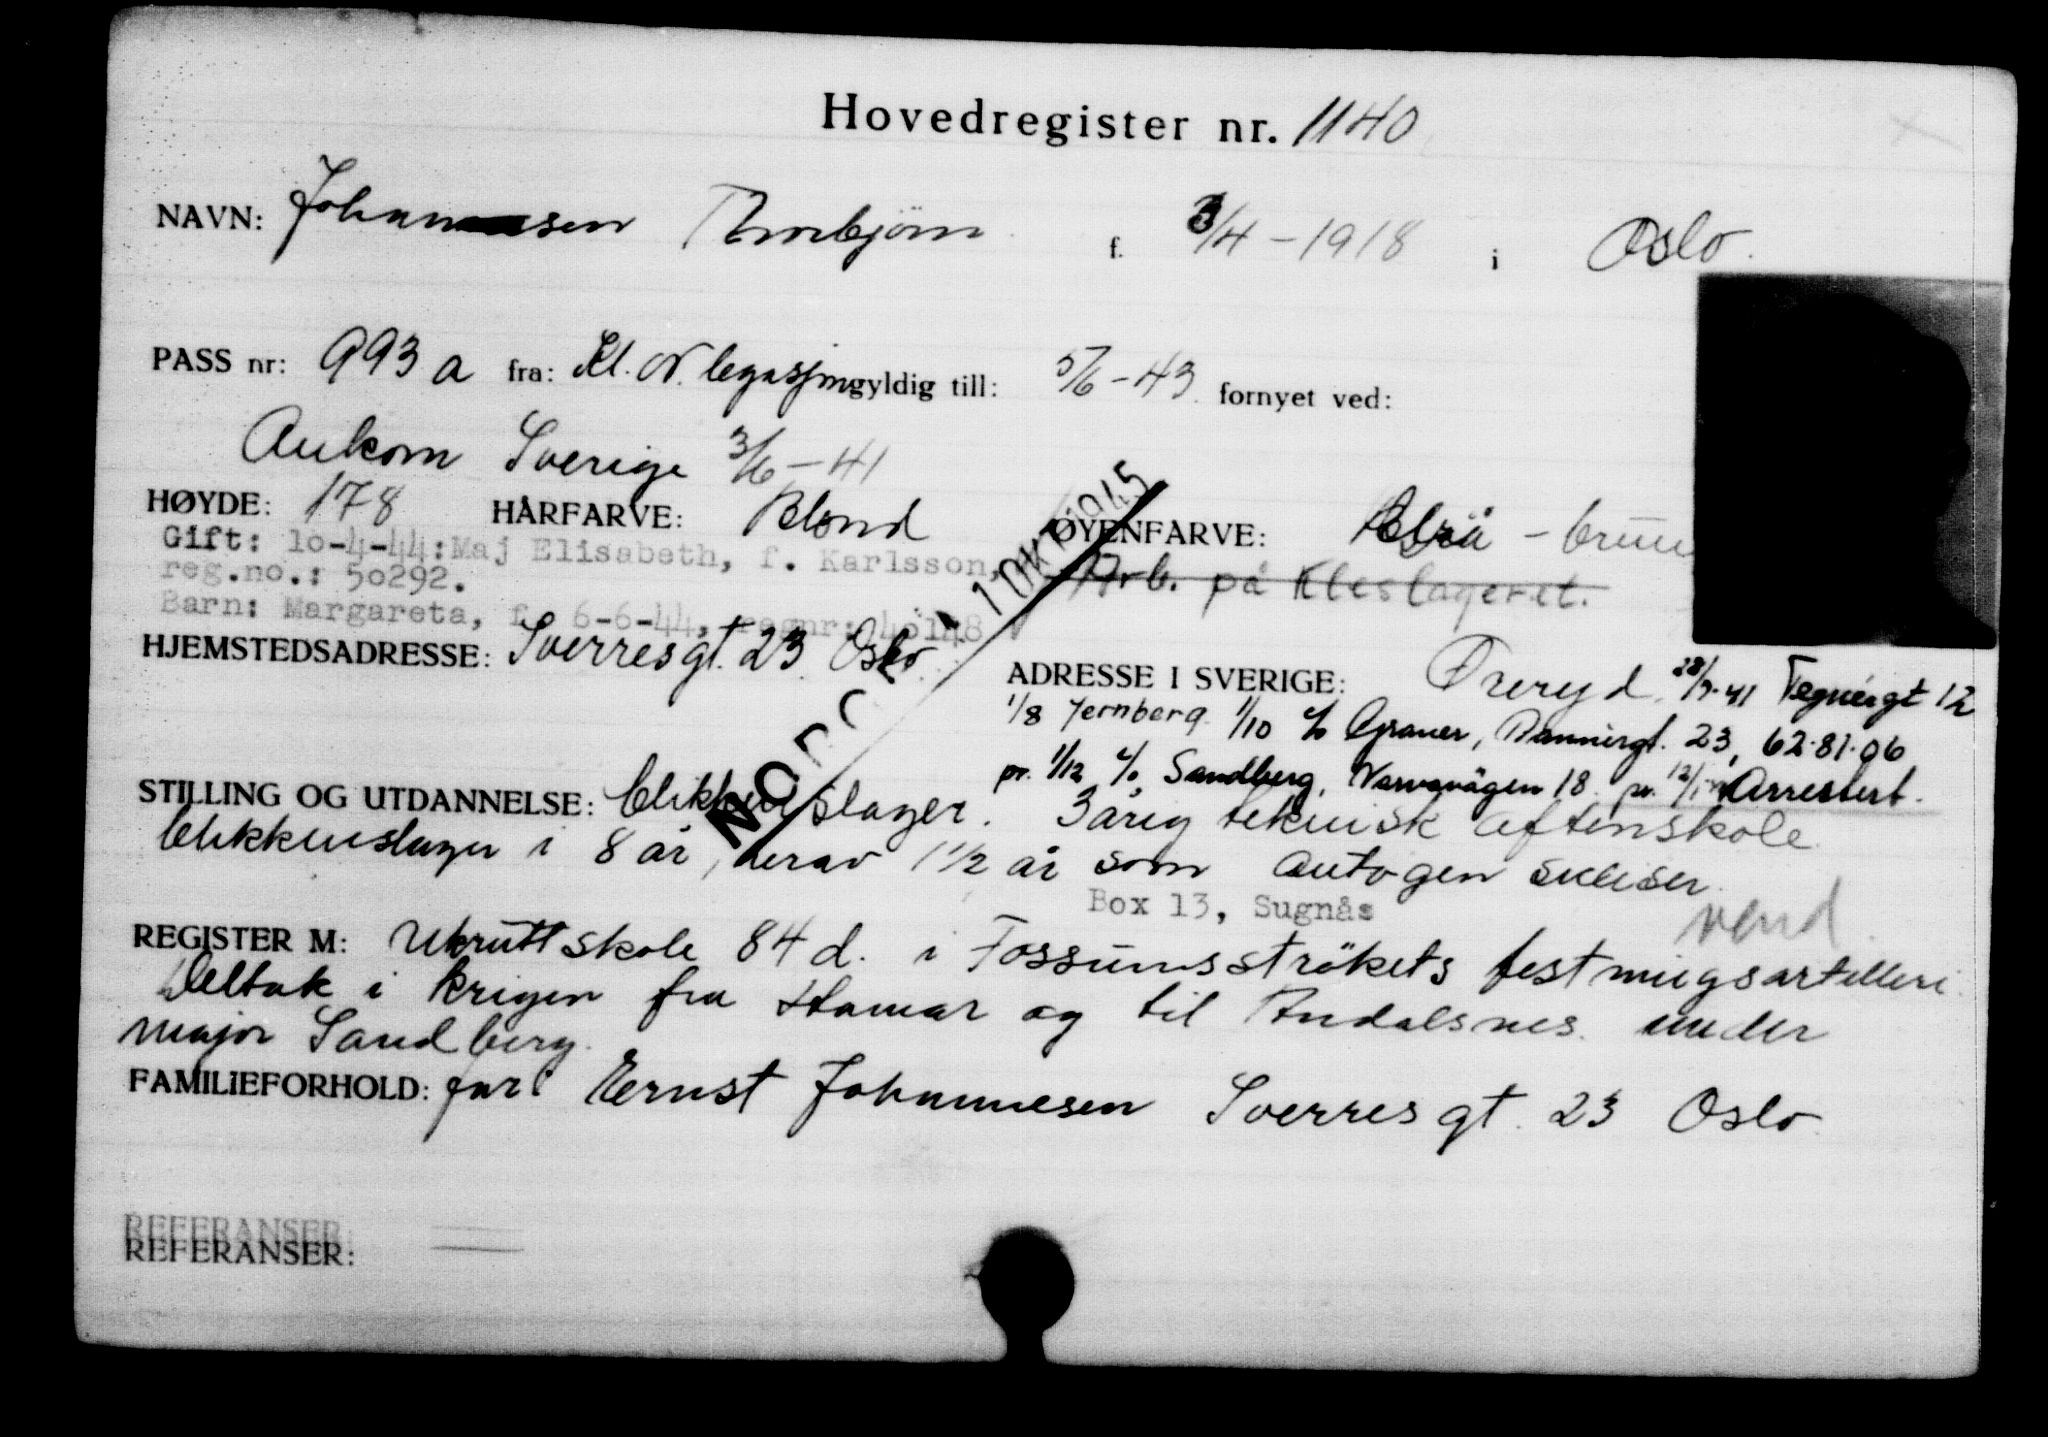 Hovedregister nr. 1140
NAVN: Johannesen Thorbjørn f. 3/4-1918 i Oslo.
PASS nr: 993 a fra: Kl. N. legasjon gyldig till: 5/6-43 fornyet ved:
Ankom Sverige 3/6-41
HØYDE: 178 HÅRFARVE: Blond ØYENFARVE: Blå - brun
Gift: 10-4-44: Maj Elisabeth, f. Karlsson, Arb. på Kleslageret.
reg.no.: 50292.
Barn: Margareta, f. 6-6-44, regnr:
NORGE 1 OKT 1945
HJEMSTEDSADRESSE: Sverresgt. 23 Oslo.
ADRESSE I SVERIGE: Öreryd 28/7-41 Tegnérgt 12
1/8 Jernberg. 1/10 c/o Graner, 23, 62.81.06
pr. 1/12 c/o Sandberg, Narvavägen 18. pr. Arrestert.
STILLING OG UTDANNELSE: blikkenslager. 3 årig teknisk aftenskole.
blikkenslager i 8 år, herav 1 1/2 år som autogen sveiser.
Box 13, Sugnäs
vend.
REGISTER M: rekruttskole 84 d. i Fossumsströkets festningsartilleri.
Deltok i krigen fra Hamar og til Åndalsnes under
major Sandberg.
FAMILIEFORHOLD: far: Ernst Johannesen Sverresgt. 23 Oslo.
REFERANSER:
REFERANSER: